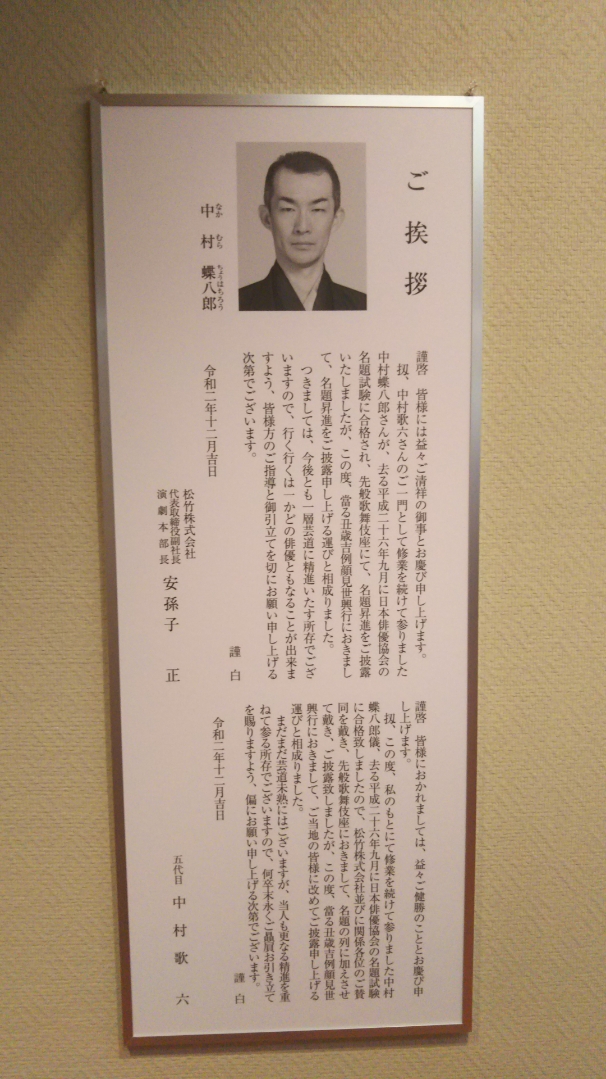 ご挨拶
中村蝶八郎
なかむらちょうはちろう
謹啓　皆様には益々ご清祥の御事とお慶び申し上げます。
扨、中村歌六さんのご一門として修業を続けて参りました
中村蝶八郎さんが、去る平成二十六年九月に日本俳優協会の
名題試験に合格され、先般歌舞伎座にて、名題昇進をご披露
いたしましたが、この度、當る丑歳吉例顔見世興行におきまし
て、名題昇進をご披露申し上げる運びと相成りました。
つきましては、今後とも一層芸道に精進いたす所存でござ
いますので、行く行くは一かどの俳優ともなることが出来ま
すよう、皆様方のご指導と御引立てを切にお願い申し上げる
次第でございます。
謹白
令和二年十二月吉日
松竹株式会社
代表取締役副社長
演劇本部長
安孫子　正
謹啓　皆様におかれましては、益々ご健勝のこととお慶び申
し上げます。
扨、この度、私のもとにて修業を続けて参りました中村
蝶八郎儀、去る平成二十六年九月に日本俳優協会の名題試験
に合格致しましたので、松竹株式会社並びに関係各位のご賛
同を戴き、先般歌舞伎座におきまして、名題の列に加えさせ
て戴き、ご披露致しましたが、この度、當る丑歳吉例顔見世
興行におきまして、ご当地の皆様に改めてご披露申し上げる
運びと相成りました。
まだまだ芸道未熟にはございますが、当人も更なる精進を重
ねて参る所存でございますので、何卒末永くご贔屓お引き立て
を賜りますよう、偏にお願い申し上げる次第でございます。
謹白
令和二年十二月吉日
五代目　中村歌六